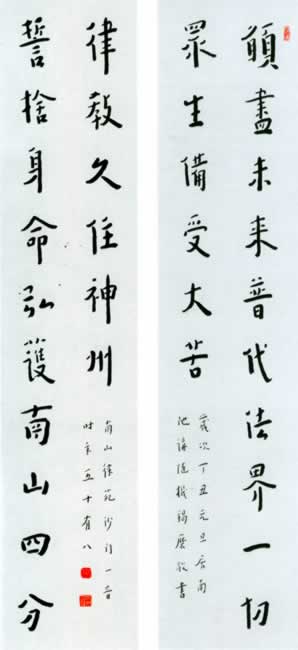 願盡未来普代法界一切
眾生備受大苦
歲次丁丑元旦南
池講隨機羯磨敬書
誓捨身命弘護南山四分
律教久住神州
南山律苑沙門一音
時年五十有八